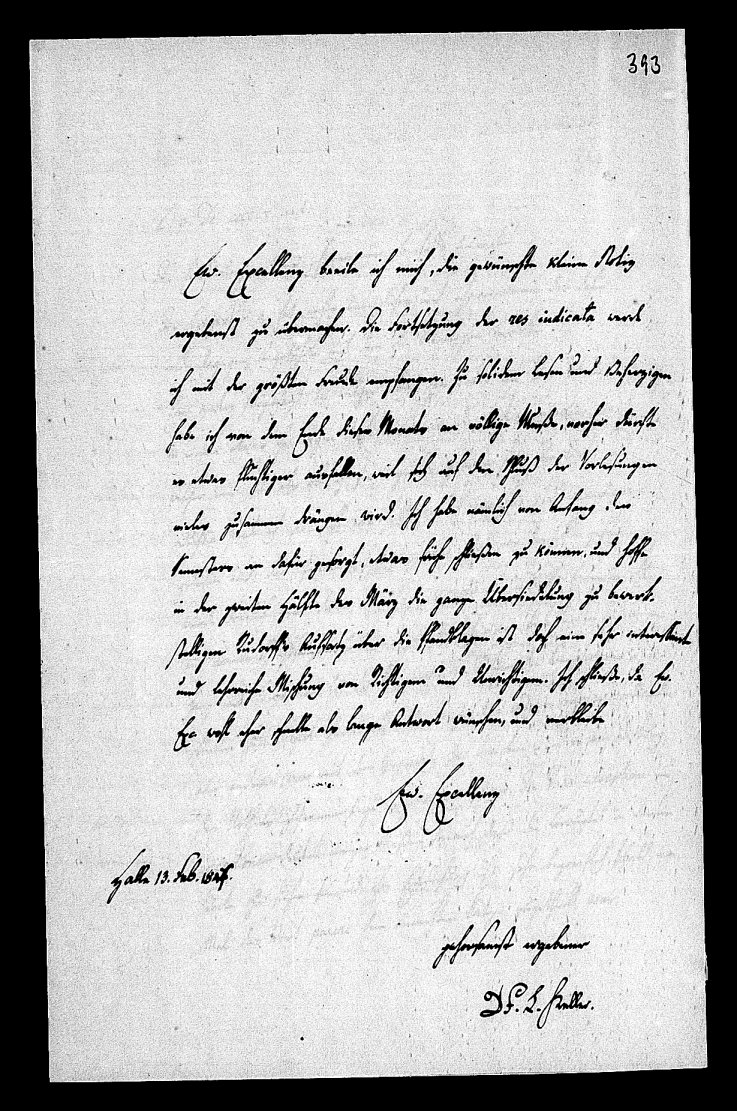 393
Ew. Excellenz beeile ich mich, die gewünschte kleine Notiz
ergebenst zu übermachen. Die Fortsetzung der res iudicata werde
ich mit der größten Freude empfangen. Zu solidem Lesen und Beherzigen
habe ich von dem Ende dieses Monats an völlige Muße, vorher dürfte
es etwas flüchtiger ausfallen, weil sich auf den Schluß der Vorlesungen
vieles zusammen drängen wird. Ich habe nämlich von Anfang des
Semesters an dafür gesorgt, etwas früh schließen zu können, und hoffe
in der zweiten Hälfte des März die ganze Übersiedelung zu bewerk-
stelligen. Rudorffs Aufsatz über die Pfandklagen ist doch eine sehr interessante
und lehrreiche Mischung von Richtigem und Unrichtigem. Ich schließe, da Ew.
Exc. wohl eher schnelle als lange Antwort wünschen, und verbleibe
Ew. Excellenz
Halle 13. Feb. 1847.
gehorsamst ergebener
D F. L. Keller.